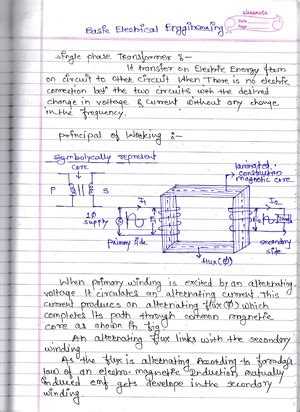 classmate
Date
Page
Basic Electrical Enggineering
single phase Transformer :-
It transfer on Electric Energy from
on circuit to other circuit when There is no electric
connection bet the two circuits with the desired
change in voltage & current without any change
in the frequency.
principal of Working :-
symbolycally represent
core
P
S
laminated
construction
magnetic core
I1
I2
1Φ
supply
primary side
secondary
side
flux(Φ)
When primary winding is excited by an alternating
voltage It circulates an alternating current This
current produces an alternating flux(Φ) which
completes Its path through common magnetic
core as shown in fig
An alternating flux links with the secondary
winding
As the flux is alternating According to faraday's
law of an electro-magnetic Induction mutually
Induced emf gets develope in the secondary
winding.